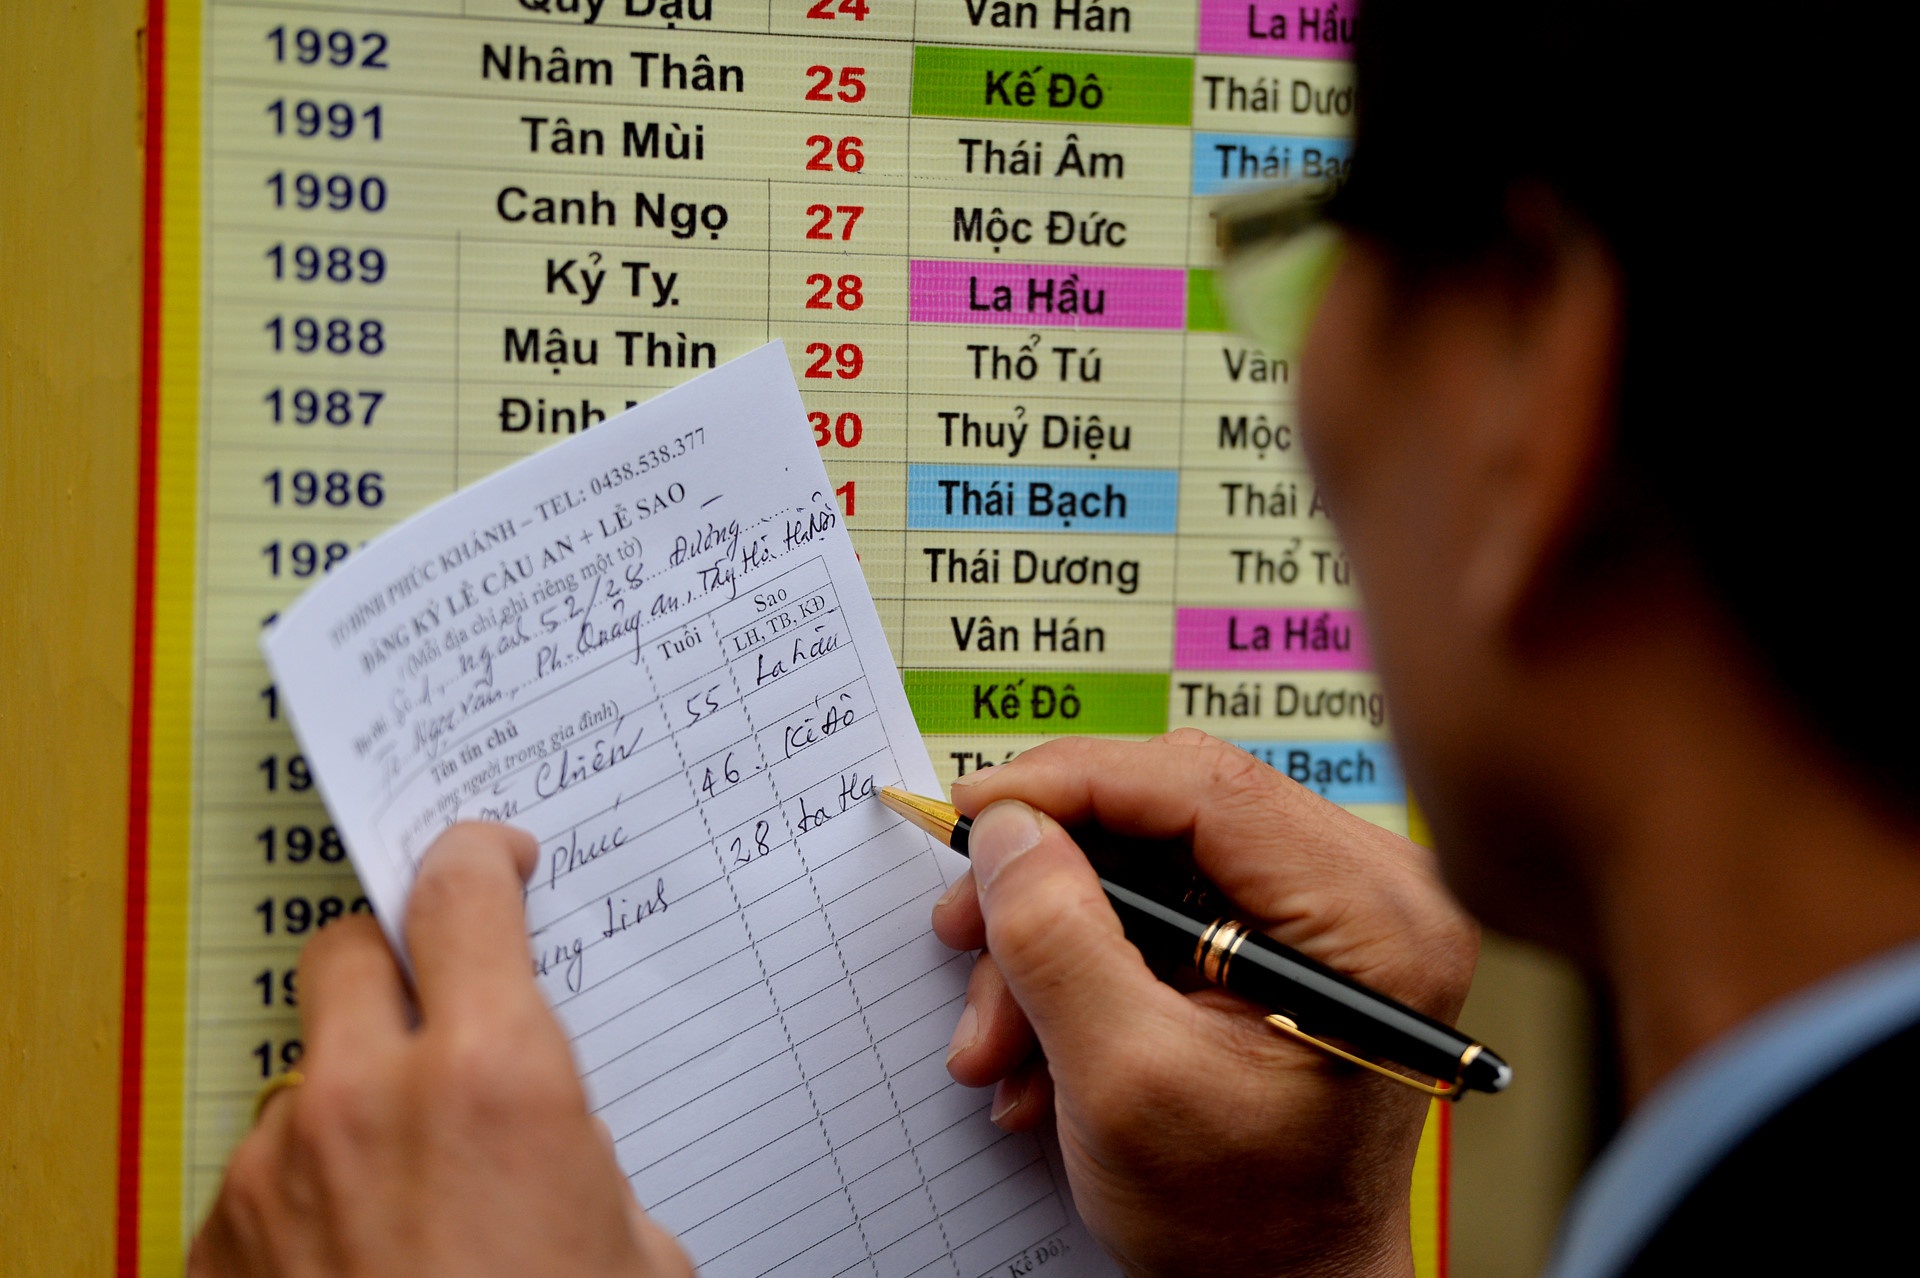 Quý Dậu 24 Vân Hán La Hầu
1992 Nhâm Thân 25 Kế Đô Thái Dươ
1991 Tân Mùi 26 Thái Âm Thái Bạc
1990 Canh Ngọ 27 Mộc Đức
1989 Kỷ Tỵ 28 La Hầu
1988 Mậu Thìn 29 Thổ Tú Vân
1987 Đinh 30 Thuỷ Diệu Mộc
1986 1 Thái Bạch Thái
198 Thái Dương Thổ Tú
Vân Hán La Hầu
Kế Đô Thái Dương
19 Thá Bạch
198
1980
19
19
TỔ ĐÌNH PHÚC KHÁNH – TEL: 0438.538.377
ĐĂNG KÝ LỄ CẦU AN + LỄ SAO
(Mỗi địa chỉ ghi riêng một tờ)
Số 1, ngách 52/28 Đường
Ngọc Vân, Ph. Quảng an, Tây Hồ Hà Nội
Tên tín chủ Tuổi Sao
người trong gia đình) LH, TB, KĐ
Chiến 55 La hầu
phúc 46 Kế Đô
ung Linh 28 La Ha
Kế Đô).